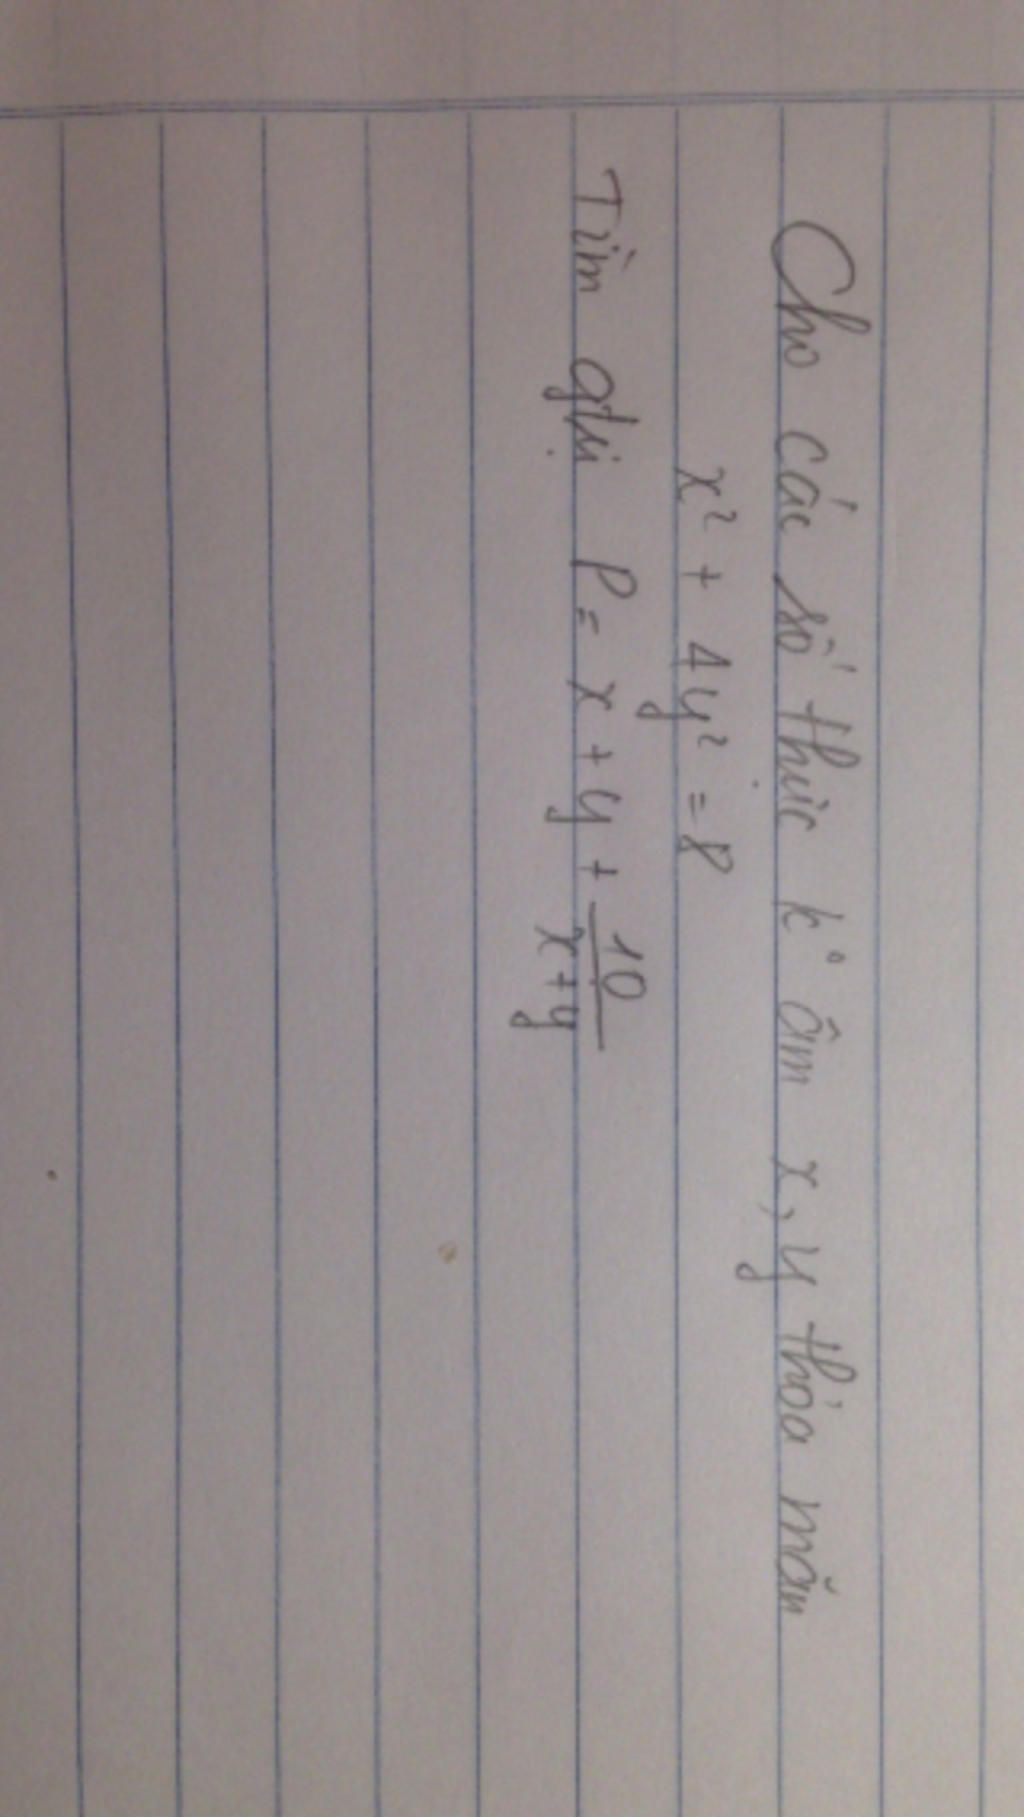 Cho các số thực k° âm x, y thỏa mãn
x² + 4y² = 8
Tìm gtri P = x + y + \frac{10}{x+y}